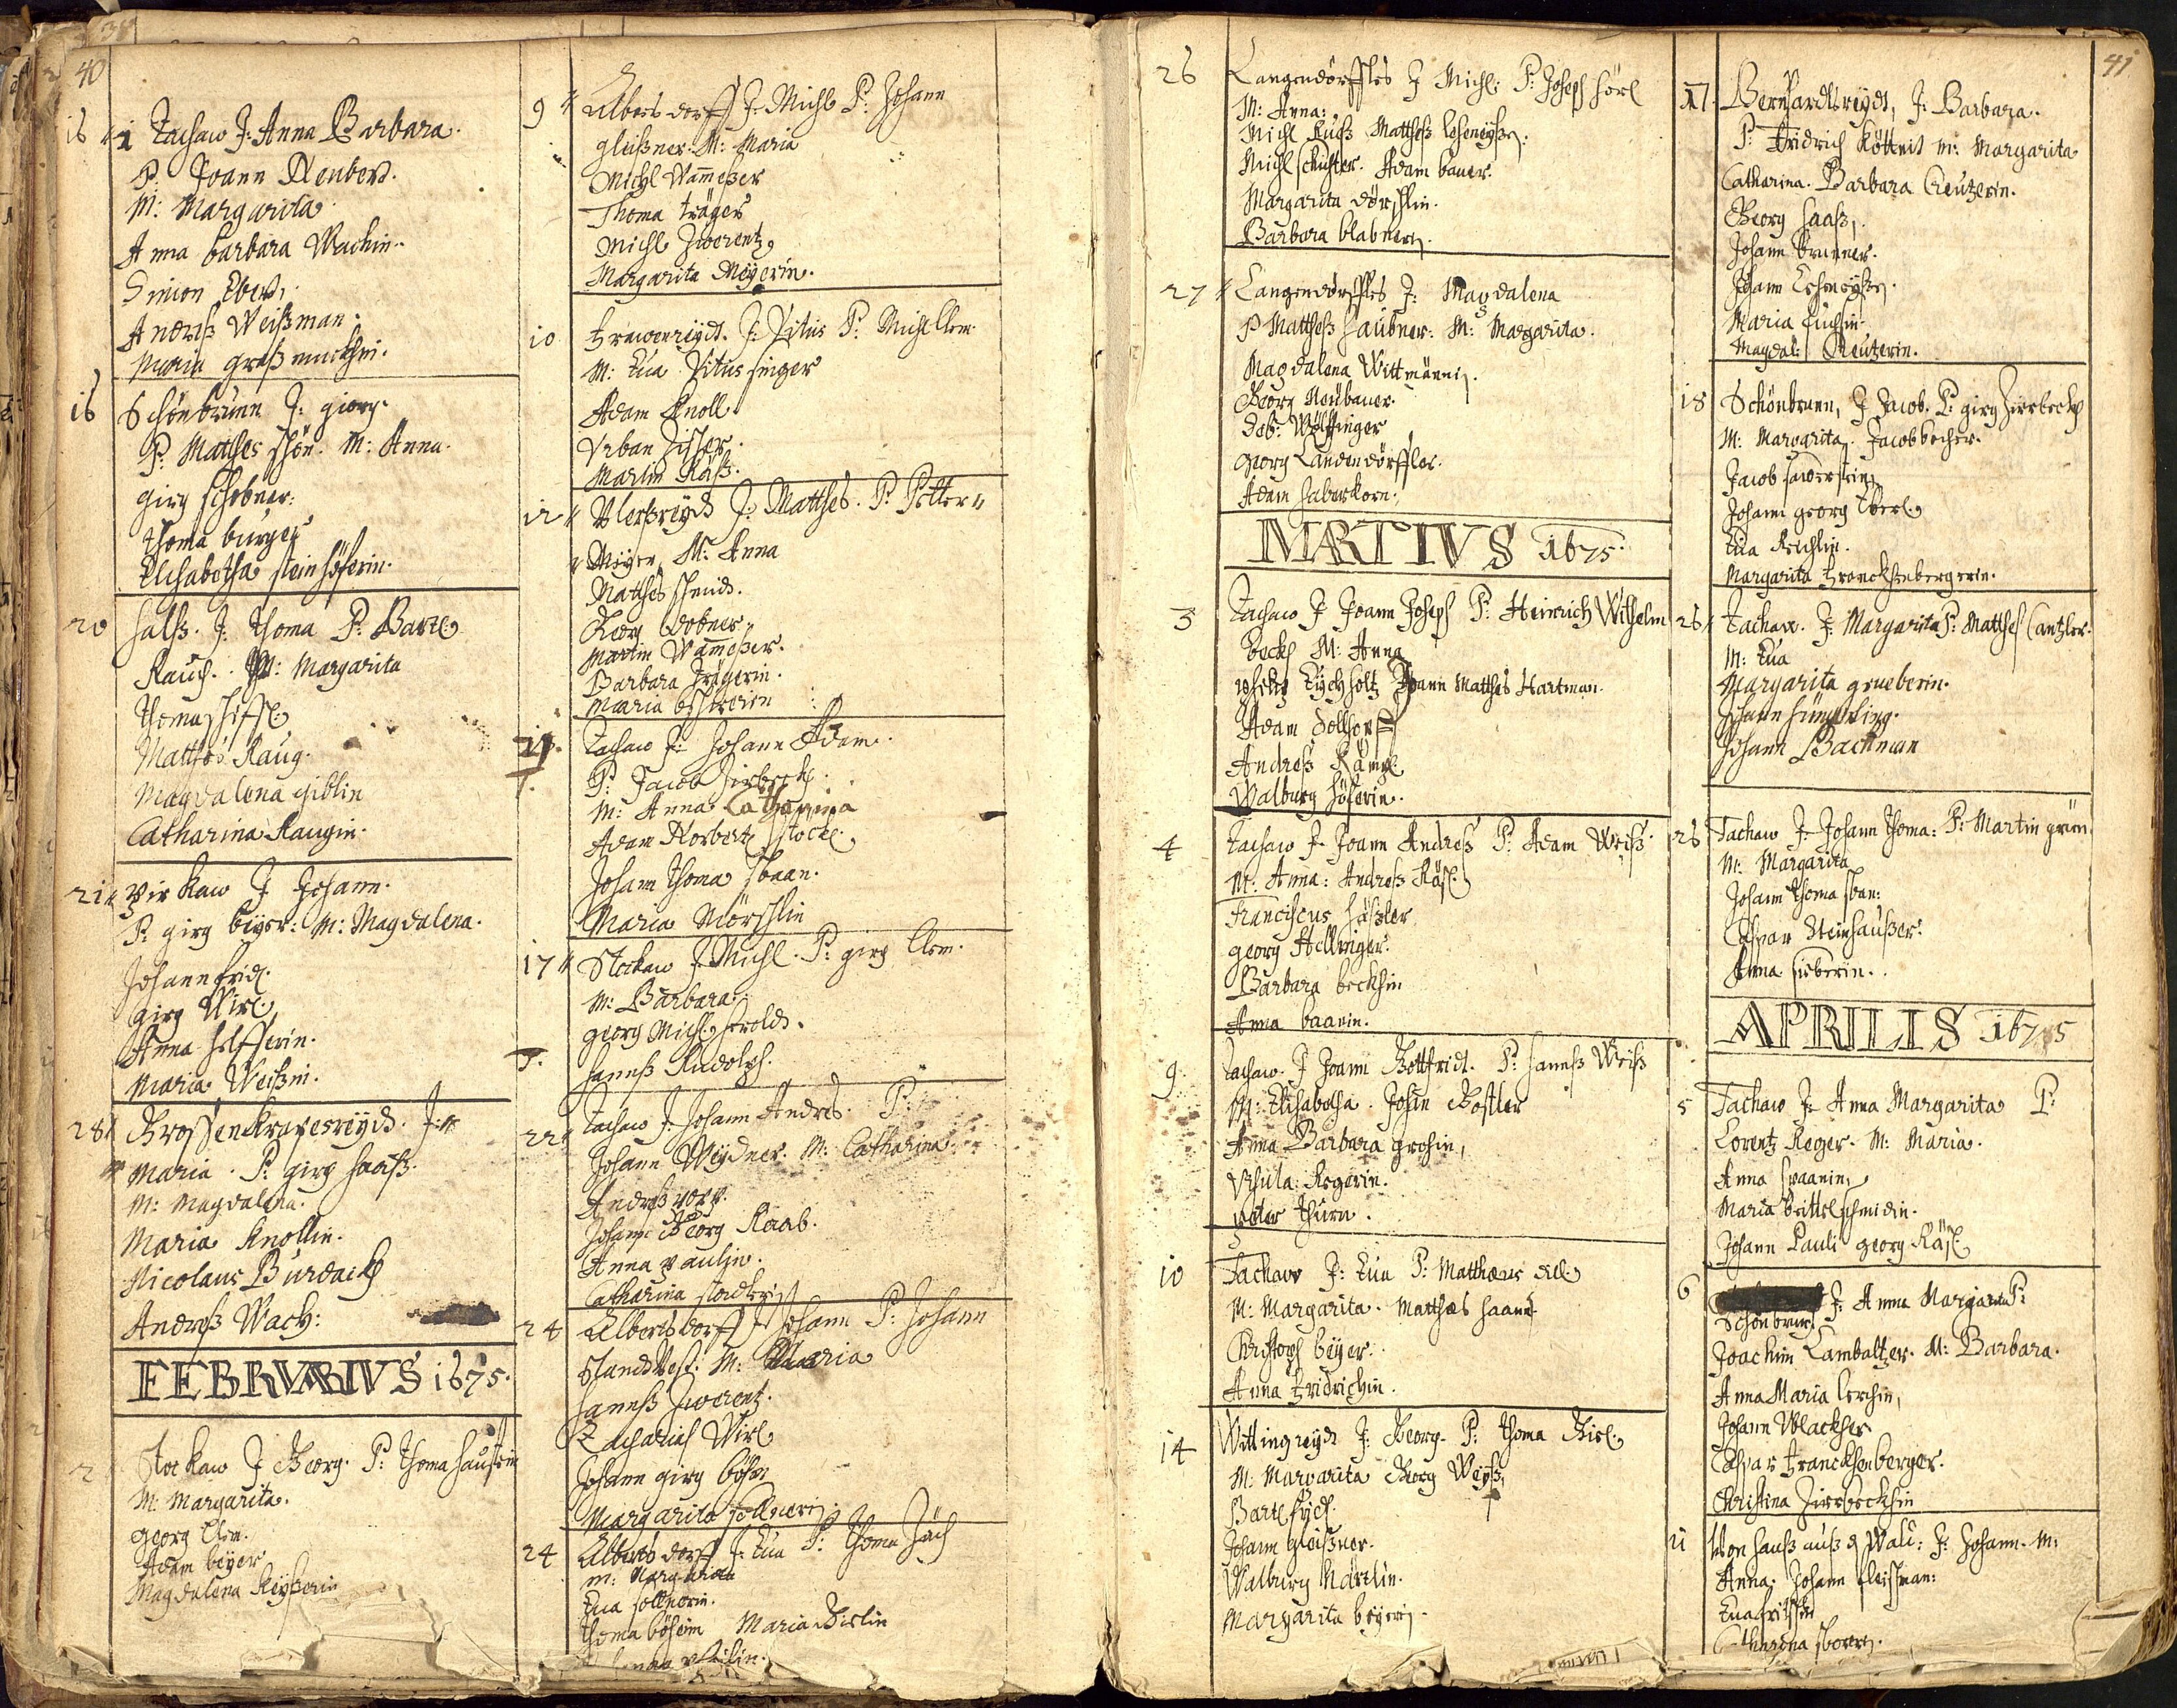 40
16 1 Tachaw J: Anna Barbara.
P: Joann Neuber.
M: Margarita.
Anna barbara Wachin.
Simon Eberl,
Andreß Weißman.
Maria
16 Schönbrunn J: georg.
P: Matthes schön. M: Anna.
girg schobner:
Thoma burger
Elisabetha steinhöferin.
20 halß. J: Thoma P: Bartl
Rauch. M: Margarita
Thoma
Matthes Raug.
Magdalena giblin
Catharina Raugin.
21 Pirkaw J Johann.
P: girg beyer: M: Magdalena.
Johann frid.
girg Wirl.
Anna helfferin.
Maria Weißin.
28 Grossenkraresreydt. J:
Maria. P: girg haaß.
M: Magdalena.
Maria Knollin.
Nicolaus Burdach
Andreß Wach:
FEBRVARIVS 1675.
2 Stockaw J Georg. P: Thoma haußtein
M: Margarita.
georg Clem.
Adam beyer
Magdalena Keyßerin
9 Albersdorff J: Michl P: Johann
gleißner. M: Maria
Michl Wam̄eßer
Thoma träger
Michl Zwerentz,
Margarita Meyerin.
10 frawenreydt. J: Vitus P: Michl Clem
M: Eua Vitus singer
Adam Knoll.
Vrban fischer.
Martin Räß.
12 Vlerßreydt J: Matthes. P: Petter
Meyer, M: Anna
Matthes schmidt.
Georg Dobner
Martin Wam̄eßer.
Barbara Trägerin.
Maria
Tachaw J: Johann Adam.
P: Jacob Zirbeckh.
M: Anna Catharina
Adam Norbert stöckl.
Johann Thoma spaan.
Maria Mörschlin
17 Stockaw J. Michl. P: girg Clem.
M: Barbara.
georg Michl herold.
Hanneß Rudolph.
22 Tachaw J. Johann Andres. P:
Johann Weydner. M: Catharina.
Andreß
Johann Georg Raab.
Anna paulin.
Catharina stöcklin
24 Albertsdorff J: Johann P: Johann
M: Maria
hanneß Zwerentz.
Zacharias Wirl
Johann girg böhm
Margarita sollnerin.
24 Albertsdorff J: Eua P: Thoma Zach
M: Margarita
Eua sollnerin.
Thoma böheim Maria Girlin
26 Langendörffles J Michl: P: Joseph hörl
M: Anna:
Michl Fuchß Mattheß
Michl schuster. Adam bauer.
Margarita dörschlin.
Barbara blabnerin.
27 Langendörffles J: Magdalena
P Mattheß haubner: M: Margarita.
Magdalena Wittmännin.
Georg Neübauer.
Seb: Wölffinger
georg Landendörffler.
Adam haberkorn.
MARTIVS 1675.
3 Tachaw J Joann Joseph P: Heinrich Wilhelm
beckh M: Anna
Eychholtz Joann Matthes Hartman.
Adam dollhopff
Andreß Kämpf
Walburg höferin.
4 Tachaw J Joann Andreß P: Adam Weiß.
M: Anna: Andreß Räß.
Franciscus häßler
georg Hellinger.
Barbara beckhin
Anna baarin.
9 Tachaw. J Joann Gottfridt. P: hanneß Weiß
M: Elisabetha. Johann Gostler
Anna Barbara groſin,
Vrsula: Regerin.
peter Thurn.
10 Tachaw J: Eua P: Matthæus
M: Margarita. Matthæs haan
Christoph beyer.
Anna fridrichin.
14 Wittingreydt J: Georg. P: Thoma Girl.
M: Margarita Georg Weyß,
Bartl
Johann gleißner.
Walburg Märtlin.
Margarita beyerin.
41
17. Bernhardtsreydt, J: Barbara.
P: Fridrich Köttnit M: Margarita
Catharina. Barbara Creutzerin.
Georg haaß,
Johann brunner.
Johann
Maria fuchsin.
Magdal: Creutzerin.
18 Schönbrunn, J Jacob. P: girg Zierbeckh
M: Margarita. Jacob becher.
Jacob
Johann georg Eberl.
Eua Reichlin.
Margarita franckhenbergerin.
26 Tachaw. J: Margarita P: Matthes Cantzler.
M: Eua
Margarita grueberin.
Johann
Johann Bachman
26 Tachaw J: Johann Thoma: P: Martin grün
M: Margarita
Johann Thoma span:
Caspar Steinhaußer.
Anna sieberin.
APRILIS 1675
5 Tachaw J: Anna Margarita P:
Lorentz Reger. M: Maria.
Anna spaanin,
Maria brittelschmidin.
Johann Pauli georg Räß
6 J: Anna Margarita P:
Schönbrun
Joachim Lambaltzer. M: Barbara.
Anna Maria lerchin,
Johann Wackher
Caspar franckhenberger.
Christina Zierbeckhin
11 Von hauß auß d Wald: J: Johann. M:
Anna. Johann fleischman:
Eua
Catharina